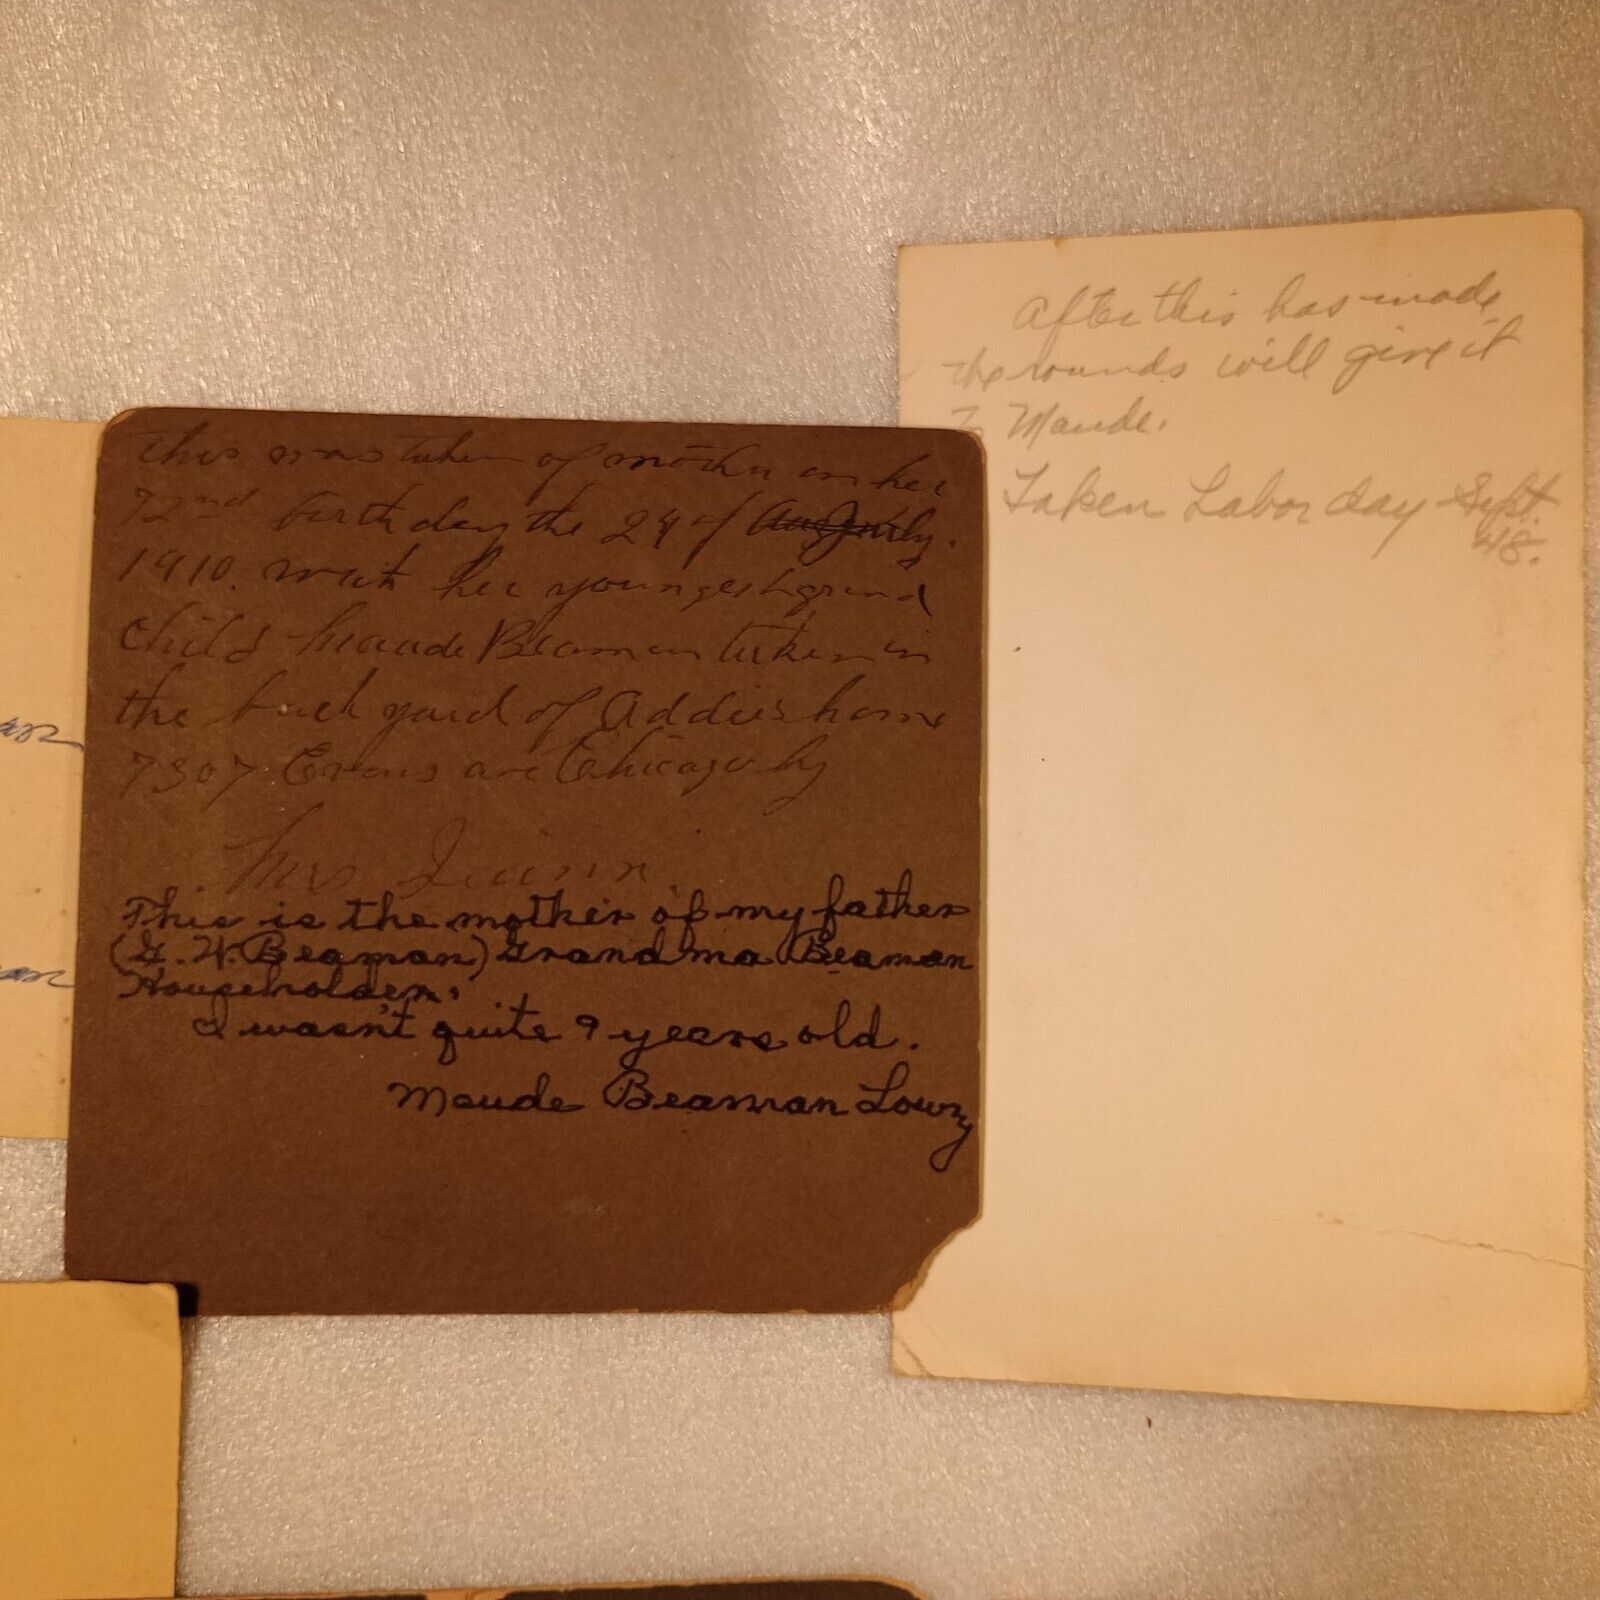 this was taken of mother on her
72nd birthday the 24 of July.
1910. with her youngest grand
child Maude Beaman taken in
the back yard of Addie's home
7307 Evans ave Chicago by
Mrs Quinn
This is the mother of my father
(G. W. Beaman) Grandma Beaman
Householder.
I wasn't quite 9 years old.
Maude Beaman Lowry
After this has made
the rounds will give it
To Maude.
Taken Labor day Sept.
48.